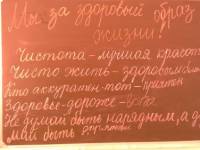 Мы за здоровый образ
жизни!
Чистота – лучшая красота
Чисто жить – здоровым быть
Кто аккуратен – тот – приятен
Здоровье – дороже –
Не думай быть нарядным, а ду
май быть